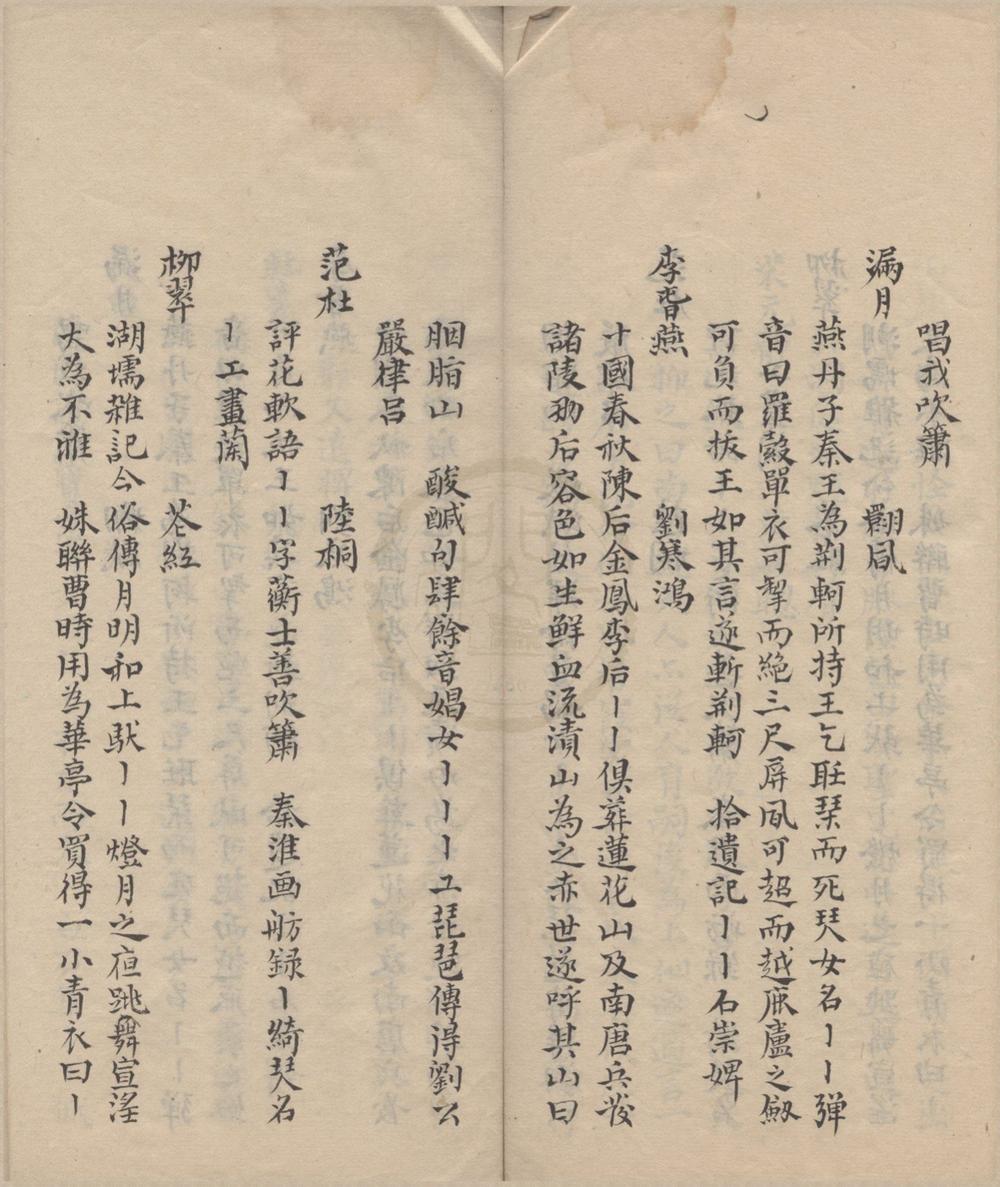 唱我吹簫
漏月　翾風
燕丹子秦王為荆軻所持王乞聽琴而死琴女名丨丨彈
音曰羅縠單衣可掣而絶三尺屏風可超而越鹿盧之劍
可負而拔王如其言遂斬荆軻　拾遺記丨丨石崇婢
李春燕　劉寒鴻
十國春秋陳后金鳳李后丨丨俱葬蓮花山及南唐兵發
諸陵劫后容色如生鮮血流漬山為之赤世遂呼其山曰
胭脂山　酸醎句肆餘音娼女丨丨丨工琵琶傳得劉公
嚴律吕
范杜　陸桐
評花軟語丨丨字蘅士善吹簫　秦淮画舫録丨綺琴名
丨工畫蘭
柳翠　苍紅
湖壖雜記今俗傳月明和上馱丨丨燈月之夜跳舞宣滛
大為不雅　姝聯曹時用為華亭令買得一小青衣曰丨